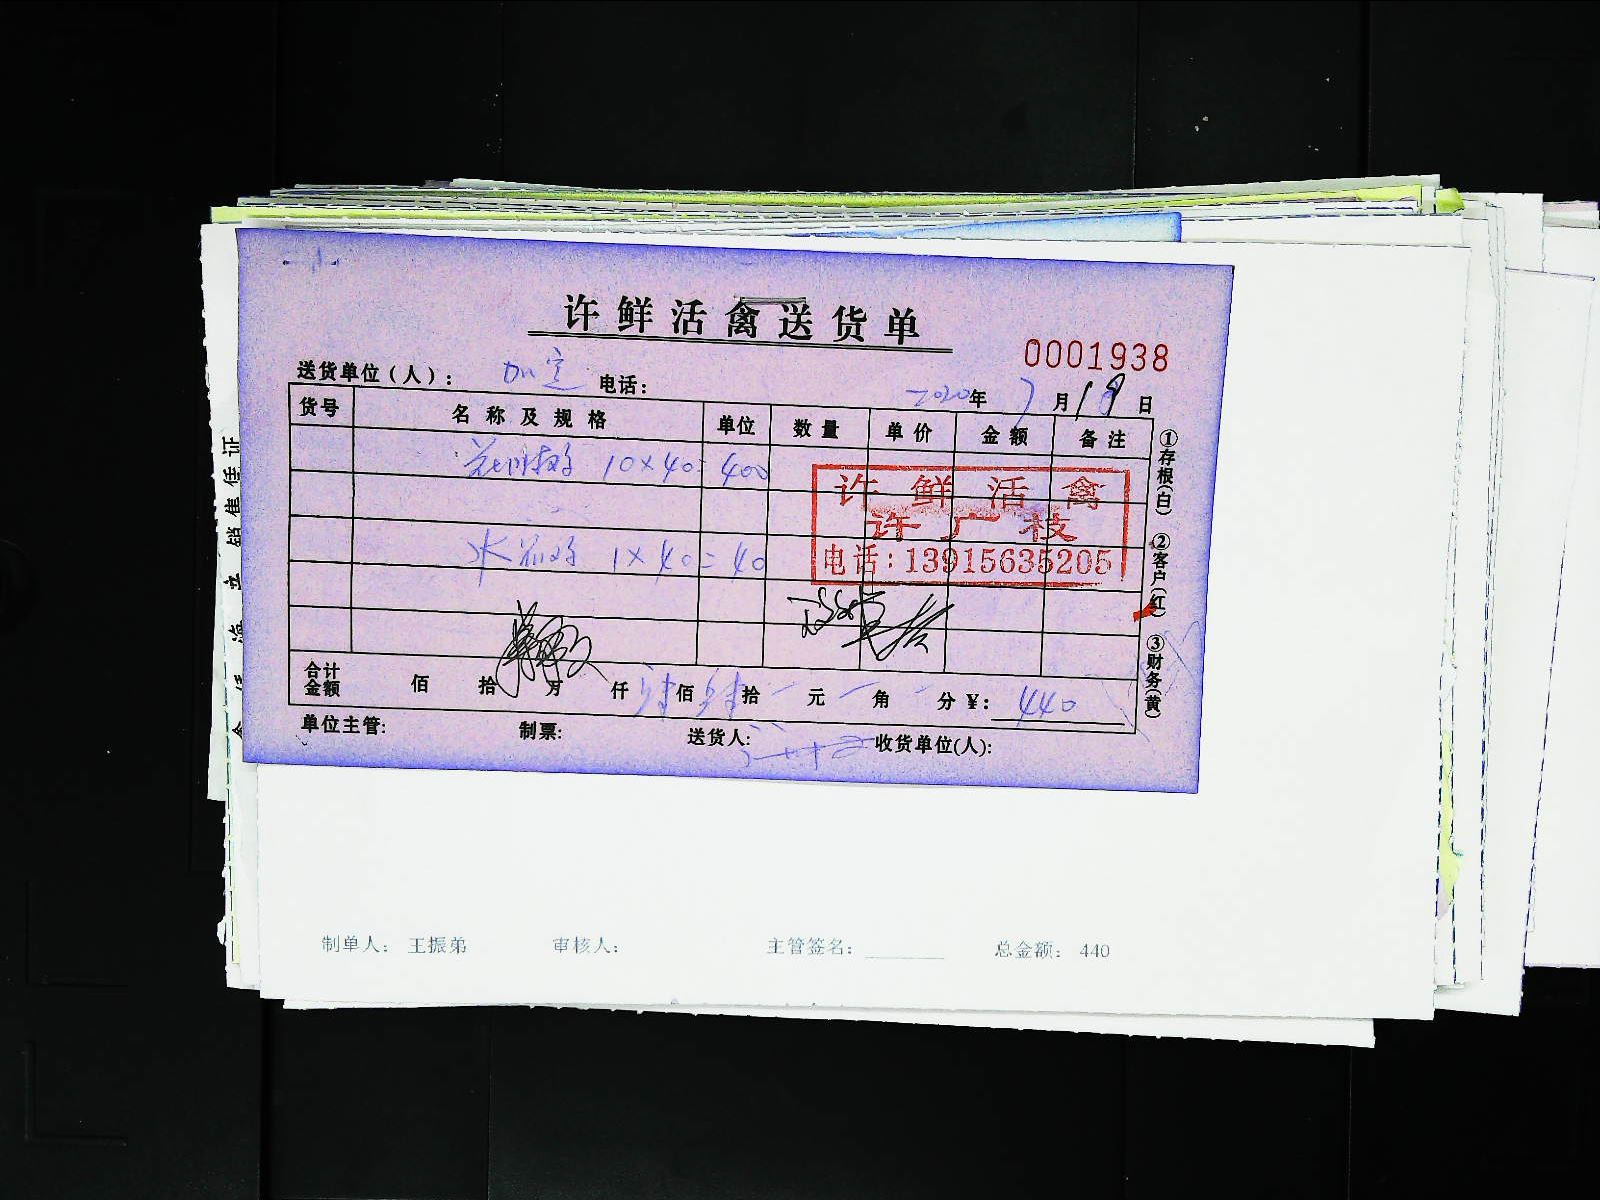 许鲜活禽送货单
0001938
送货单位(人): 电话: 2020年7月18日
货号 名称及规格 单位 数量 单价 金额 备注
10×40=400
1×40=40
许鲜活禽
许广枝
电话:13915635205
合计金额 佰 拾 万 仟 肆佰 肆拾 元 角 分 ¥: 440
单位主管: 制票: 送货人: 收货单位(人):
①存根(白) ②客户(红) ③财务(黄)
制单人: 王振弟 审核人: 主管签名: 总金额: 440